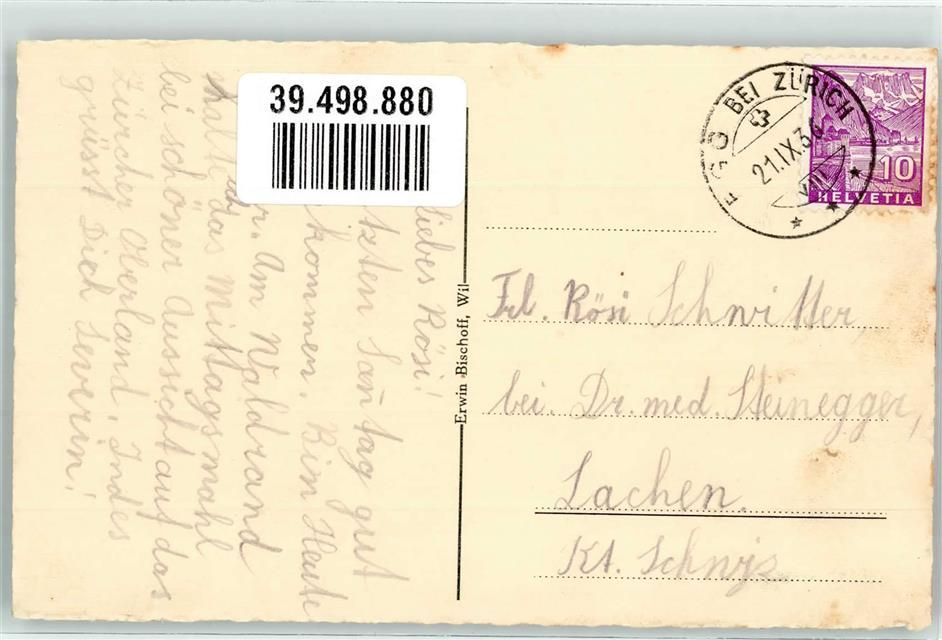 39.498.880
EGG BEI ZÜRICH
21.IX.36
VIII
10
HELVETIA
liebes Rösi!
tzten Sanntag gut
kommen. Bim Heute
er. Am Waldrand
halte das Mittagsmahl
bei schöner Aussicht auf das
Zürcher Oberland. Indes
grüsst Dich Severin!
Erwin Bischoff, Wil
Frl. Rösi Schnitter,
bei. Dr. med. Steinegger,
Lachen.
Kt. Schwyz